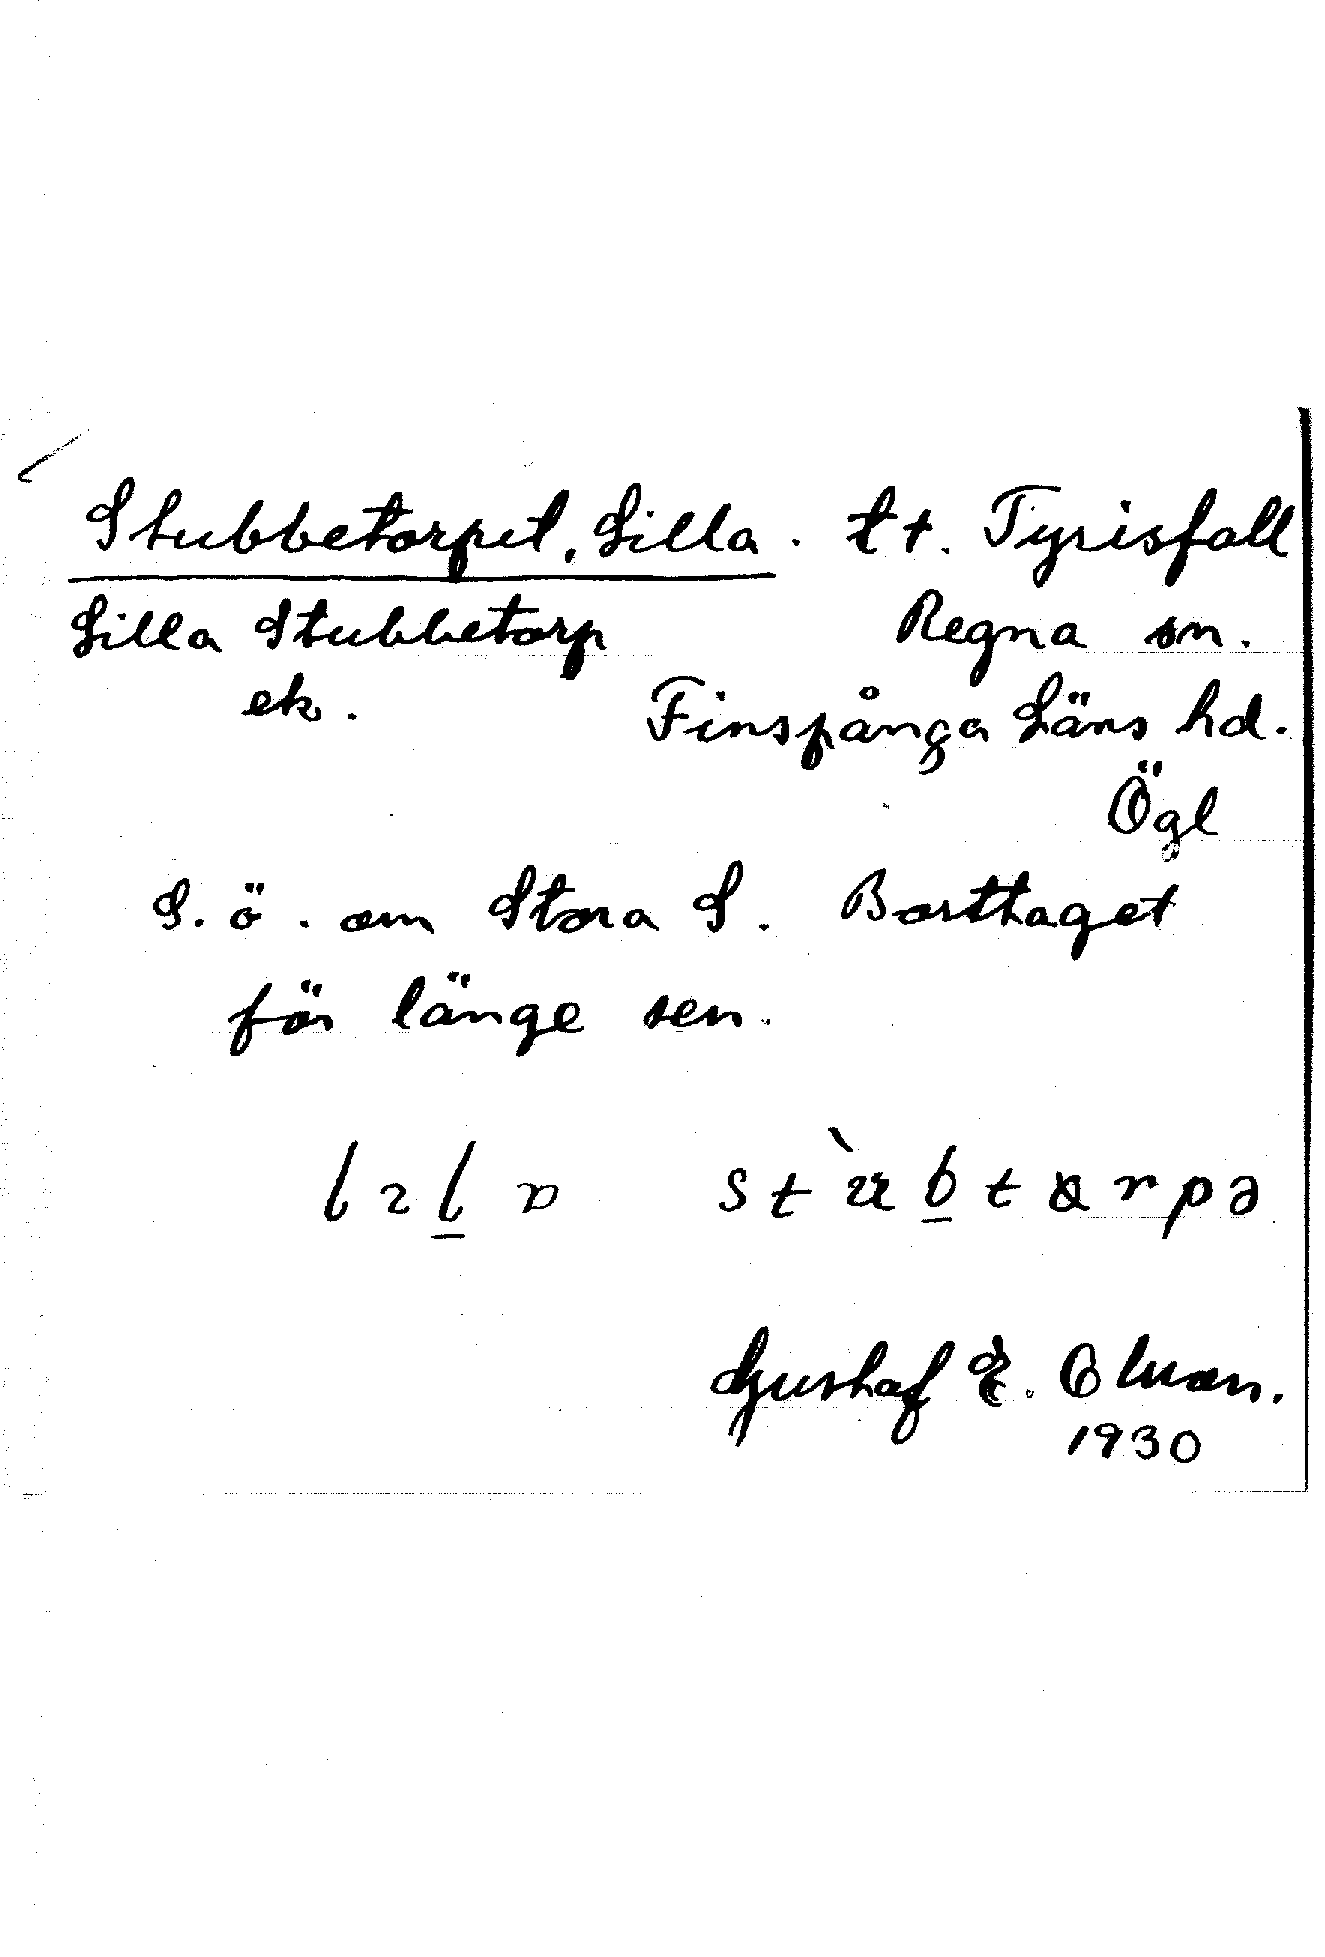 Stubbetorpet, Lilla. tt. Tyrisfall
Lilla Stubbetorp Regna sn.
ek. Finspånga Läns hd.
Ögl
S. ö. om Stora S. Borttaget
för länge sen.
Gustaf E.
1930